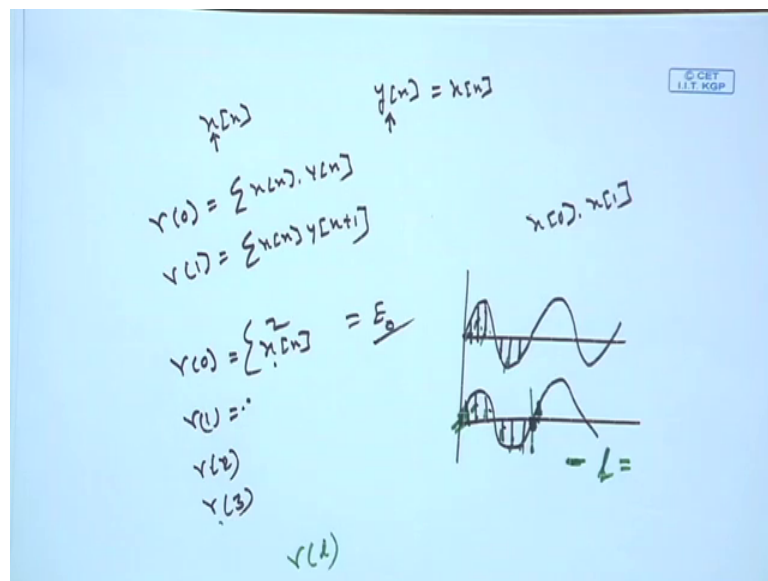 © CET
I.I.T. KGP
x[n]
y[n] = x[n]
↑
↑
r(0) = Σx[n].y[n]
r(1) = Σx[n] y[n+1]
x[0].x[1]
r(0) = Σx²[n] = E₀
r(1) =
r(2)
r(3)
- l =
r(l)